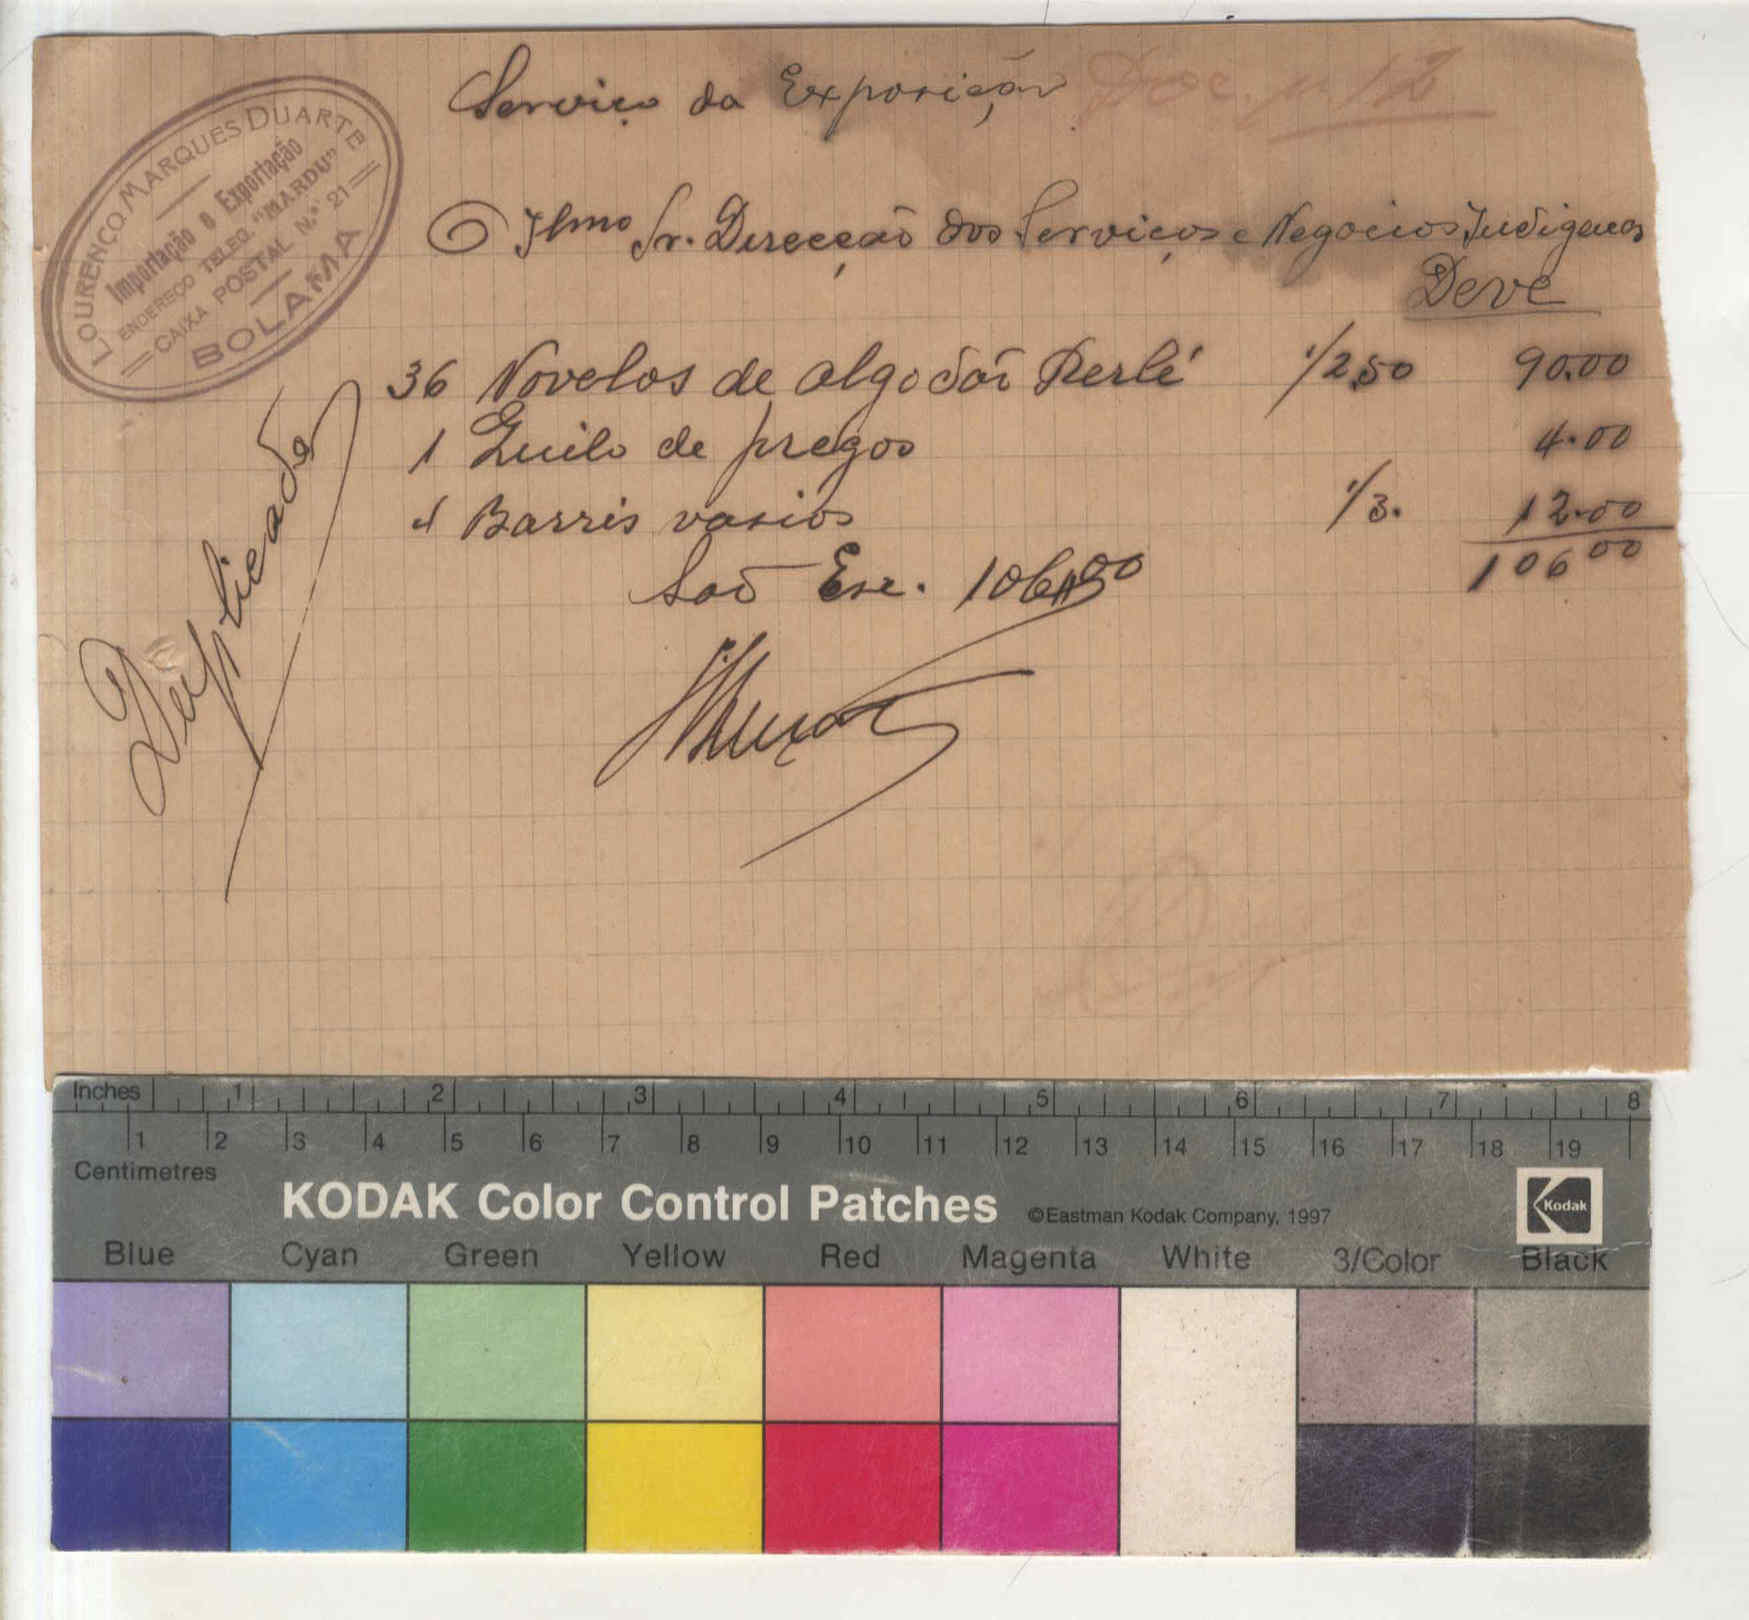 Serviço da Exposição Doc. nº 12
LOURENÇO MARQUES DUARTE
Importação e Exportação
ENDEREÇO TELEG. "MARDU"
CAIXA POSTAL N.º 21
BOLAMA
O Ilmo Sr. Direcção dos Serviços e Negocios Indigenas
Deve
36 Novelos de algodão Perlé 1/2,50 90.00
1 Quilo de pregos 4.00
4 Barris vasios 1/3. 12.00
106 00
São Esc. 106$00
Duplicado
Inches 1 2 3 4 5 6 7 8
1 2 3 4 5 6 7 8 9 10 11 12 13 14 15 16 17 18 19
Centimetres
KODAK Color Control Patches ©Eastman Kodak Company, 1997 Kodak
Blue Cyan Green Yellow Red Magenta White 3/Color Black